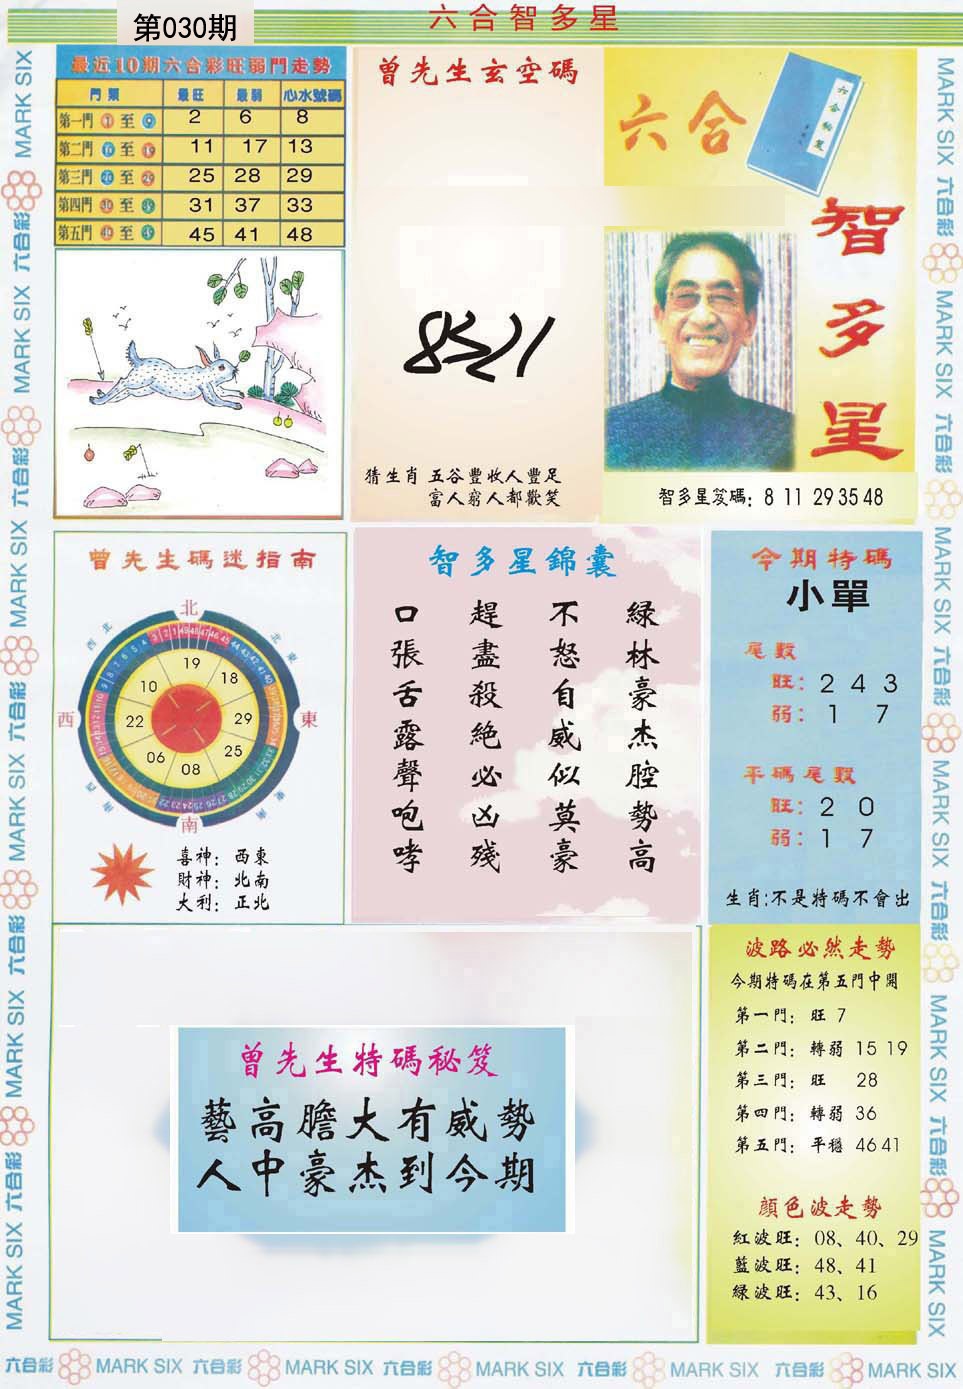 六合智多星
第030期
最近10期六合彩旺弱門走勢
門類 最旺 最弱 心水號碼
第一門 1 至 9 2 6 8
第二門 10 至 19 11 17 13
第三門 20 至 29 25 28 29
第四門 30 至 39 31 37 33
第五門 40 至 49 45 41 48
曾先生玄空碼
猜生肖 五谷豐收人豐足
富人窮人都歡笑
六合
智多星
智多星笈碼：8 11 29 35 48
曾先生碼迷指南
北
西北
東北
西
東
南
19
18
29
25
08
06
22
10
喜神：西東
財神：北南
大利：正北
智多星錦囊
綠林豪杰腔勢高
不怒自威似莫豪
趕盡殺絕必凶殘
口張舌露聲咆哮
今期特碼
小單
尾數
旺：2 4 3
弱：1 7
平碼尾數
旺：2 0
弱：1 7
生肖:不是特碼不會出
曾先生特碼秘笈
藝高膽大有威勢
人中豪杰到今期
波路必然走勢
今期特碼在第五門中開
第一門：旺 7
第二門：轉弱 15 19
第三門：旺 28
第四門：轉弱 36
第五門：平穩 46 41
顔色波走勢
紅波旺：08、40、29
藍波旺：48、41
綠波旺：43、16
MARK SIX 六合彩 MARK SIX 六合彩 MARK SIX 六合彩 MARK SIX 六合彩 MARK SIX 六合彩 MARK SIX
MARK SIX 六合彩 MARK SIX 六合彩 MARK SIX 六合彩 MARK SIX 六合彩 MARK SIX 六合彩 MARK SIX
六合彩 MARK SIX 六合彩 MARK SIX 六合彩 MARK SIX 六合彩 MARK SIX 六合彩 MARK SIX